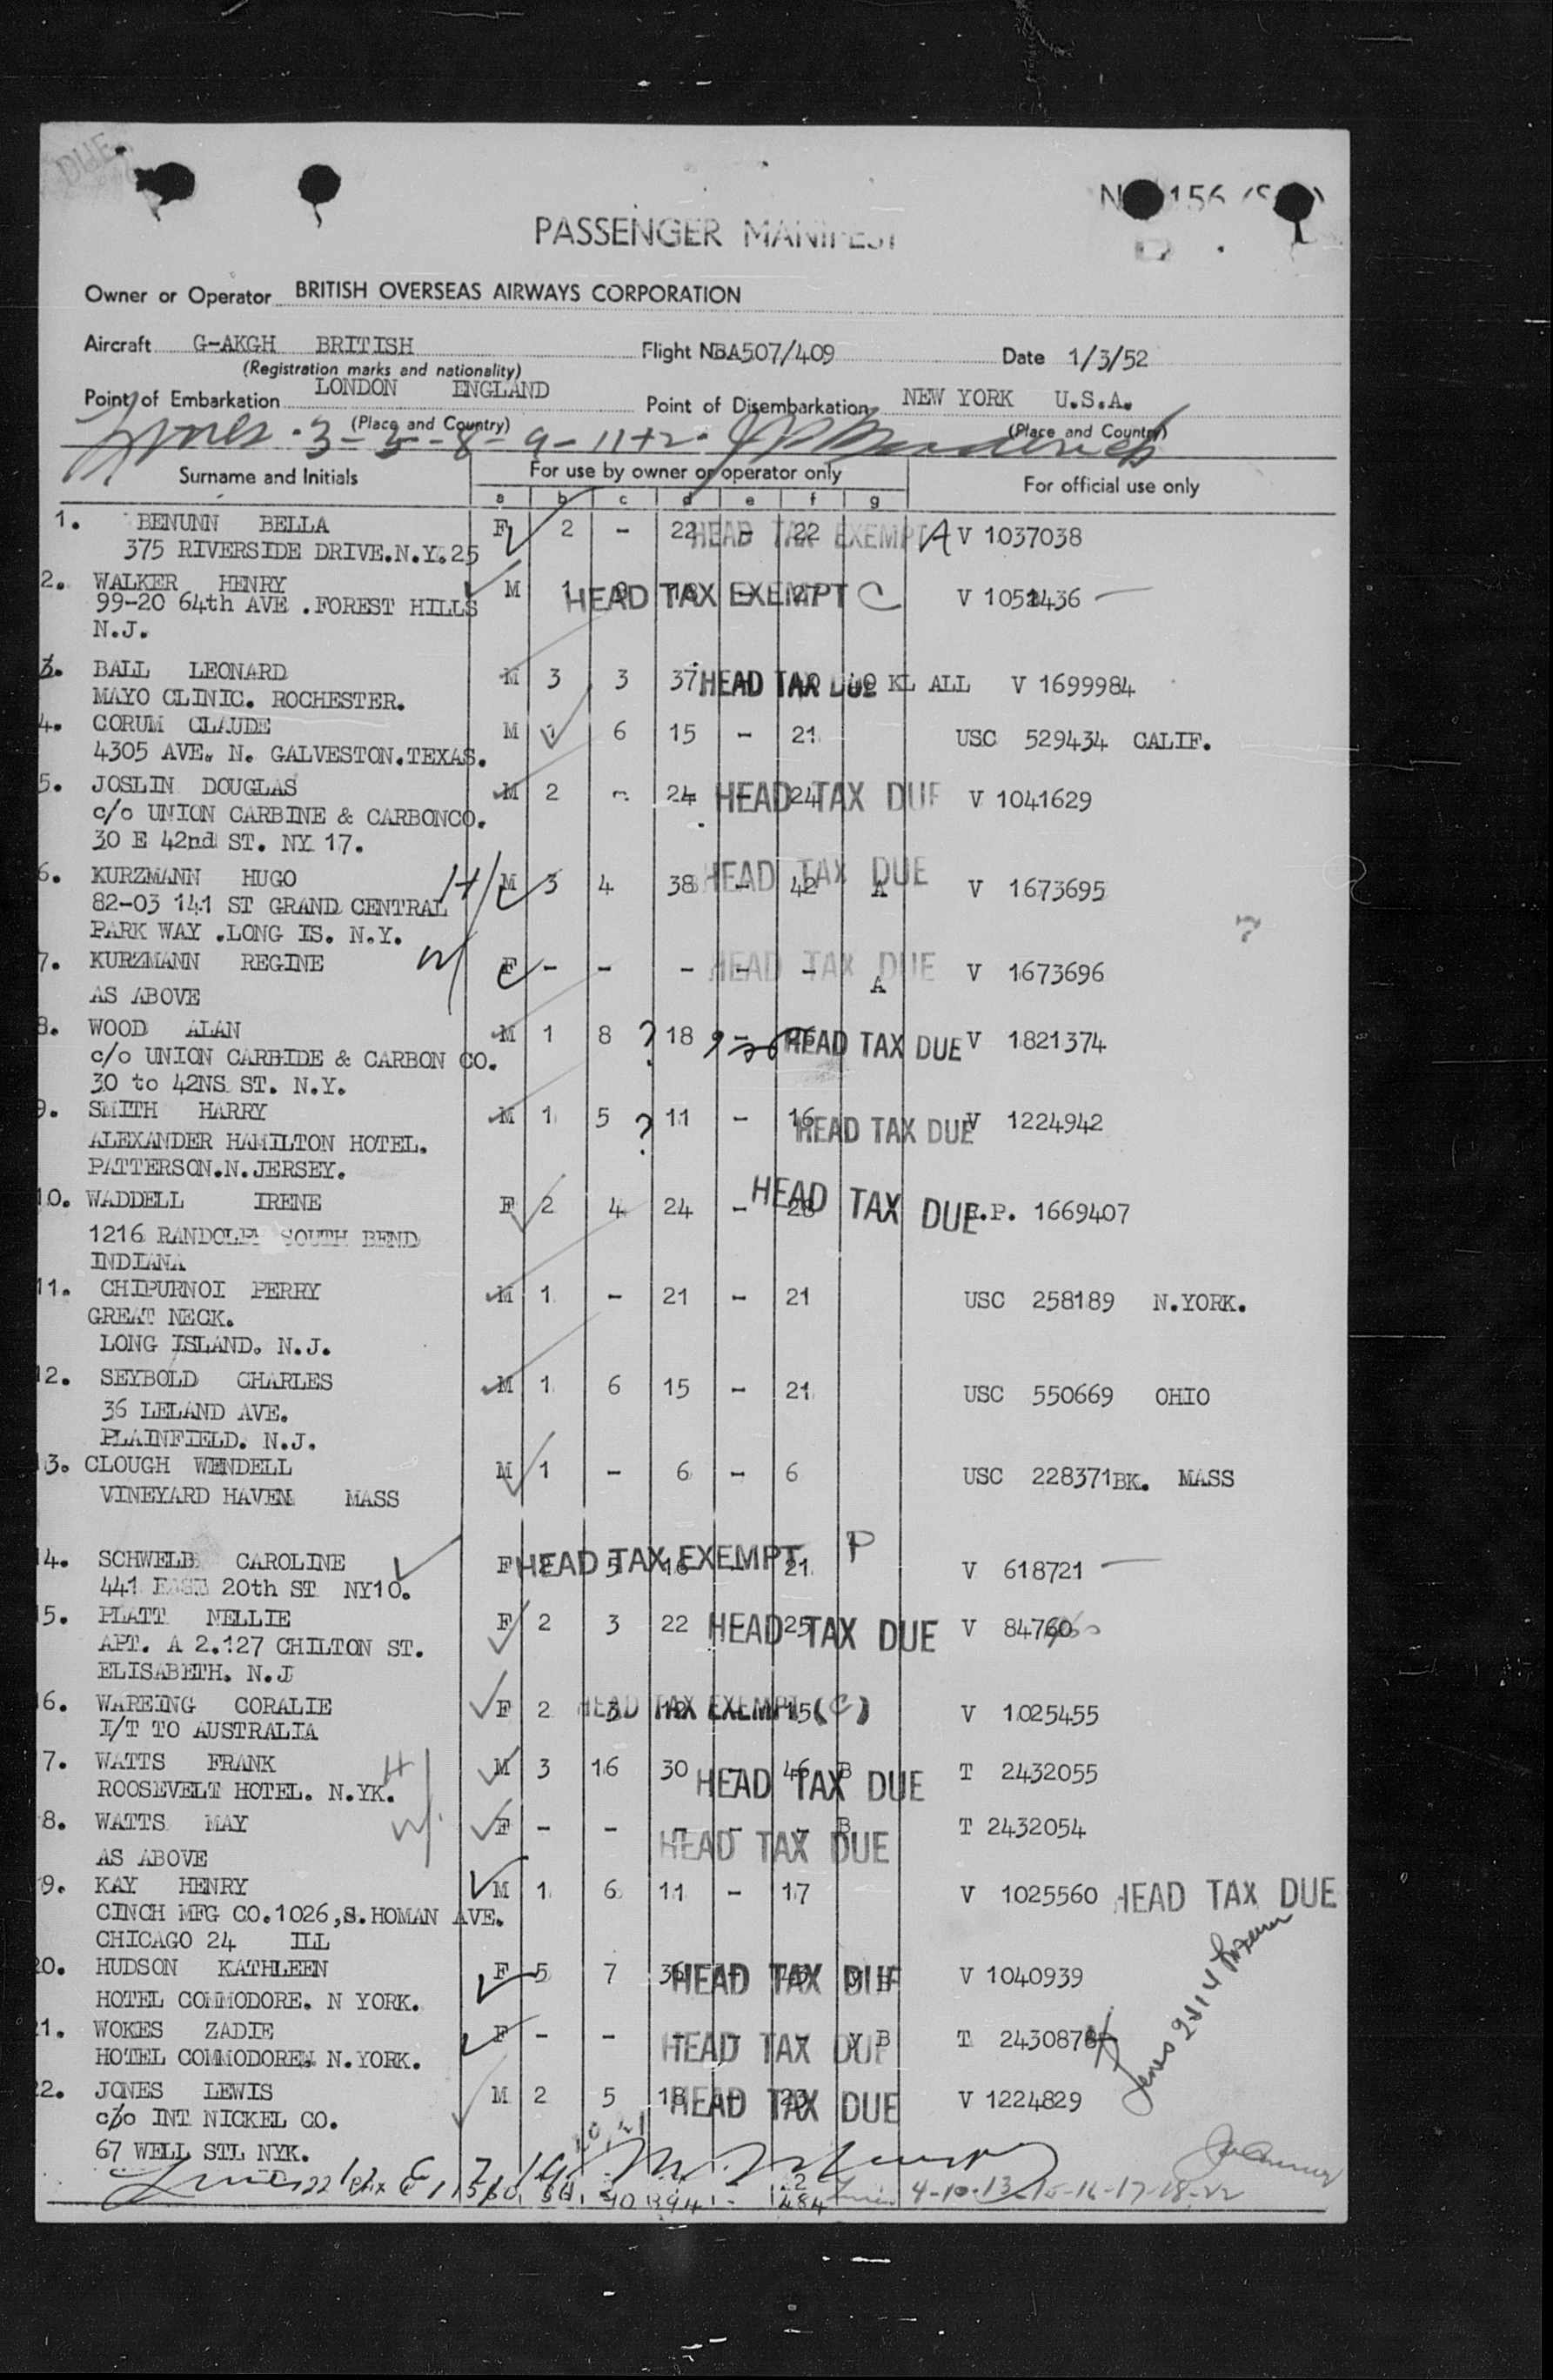 DUE
PASSENGER MANIFEST
Owner or Operator BRITISH OVERSEAS AIRWAYS CORPORATION
Aircraft G-AKGH BRITISH Flight No BA507/409 Date 1/3/52
(Registration marks and nationality)
Point of Embarkation LONDON ENGLAND Point of Disembarkation NEW YORK U.S.A.
(Place and Country) (Place and Country)
Lines 3-5-8-9-11+2.
Surname and Initials For use by owner or operator only For official use only
a b c d e f g
1. BENUNN BELLA F 2 - 22 - 22 HEAD TAX EXEMPT A V 1037038
375 RIVERSIDE DRIVE.N.Y.25
2. WALKER HENRY M 1 HEAD TAX EXEMPT C V
99-20 64th AVE .FOREST HILLS
N.J.
3. BALL LEONARD M 3 3 37 HEAD TAX DUE KL ALL V 1699984
MAYO CLINIC. ROCHESTER.
4. CORUM CLAUDE M 1 6 15 - 21 USC 529434 CALIF.
4305 AVE. N. GALVESTON.TEXAS.
5. JOSLIN DOUGLAS M 2 - 24 - 24 HEAD TAX DUE V 1041629
c/o UNION CARBINE & CARBONCO.
30 E 42nd ST. NY 17.
6. KURZMANN HUGO H M 3 4 38 - 42 A HEAD TAX DUE V 1673695
82-03 141 ST GRAND CENTRAL
PARK WAY .LONG IS. N.Y.
7. KURZMANN REGINE W F - - - - - A HEAD TAX DUE V 1673696
AS ABOVE
8. WOOD ALAN M 1 8 ? 18 - 26 HEAD TAX DUE V 1821374
c/o UNION CARBIDE & CARBON CO.
30 to 42NS ST. N.Y.
9. SMITH HARRY M 1 5 ? 11 - 16 HEAD TAX DUE V 1224942
ALEXANDER HAMILTON HOTEL.
PATTERSON.N.JERSEY.
10. WADDELL IRENE F 2 4 24 - 28 HEAD TAX DUE .P. 1669407
1216 RANDOLPH SOUTH BEND
INDIANA
11. CHIPURNOI PERRY M 1 - 21 - 21 USC 258189 N.YORK.
GREAT NECK.
LONG ISLAND. N.J.
12. SEYBOLD CHARLES M 1 6 15 - 21 USC 550669 OHIO
36 LELAND AVE.
PLAINFIELD. N.J.
13. CLOUGH WENDELL M 1 - 6 - 6 USC 228371BK. MASS
VINEYARD HAVEN MASS
14. SCHWELB CAROLINE F 2 5 16 - 21 HEAD TAX EXEMPT P V 618721
441 EAST 20th ST NY10.
15. PLATT NELLIE F 2 3 22 25 HEAD TAX DUE V 84760
APT. A 2.127 CHILTON ST.
ELISABETH. N.J
16. WAREING CORALIE F 2 3 12 15 HEAD TAX EXEMPT (C) V 1025455
I/T TO AUSTRALIA
17. WATTS FRANK H M 3 16 30 - 46 B HEAD TAX DUE T 2432055
ROOSEVELT HOTEL. N.YK.
18. WATTS MAY W F - - - - - B HEAD TAX DUE T 2432054
AS ABOVE
19. KAY HENRY M 1 6 11 - 17 V 1025560 HEAD TAX DUE
CINCH MFG CO.1026,S.HOMAN AVE.
CHICAGO 24 ILL
20. HUDSON KATHLEEN F 5 7 36 HEAD TAX DUE V 1040939
HOTEL COMMODORE. N YORK.
21. WOKES ZADIE F - - HEAD TAX DUE B T 243087
HOTEL COMMODORE N.YORK.
22. JONES LEWIS M 2 5 18 - 23 HEAD TAX DUE V 1224829
c/o INT NICKEL CO.
67 WELL STL NYK.
484 4-10-13-15-16-17-18-22